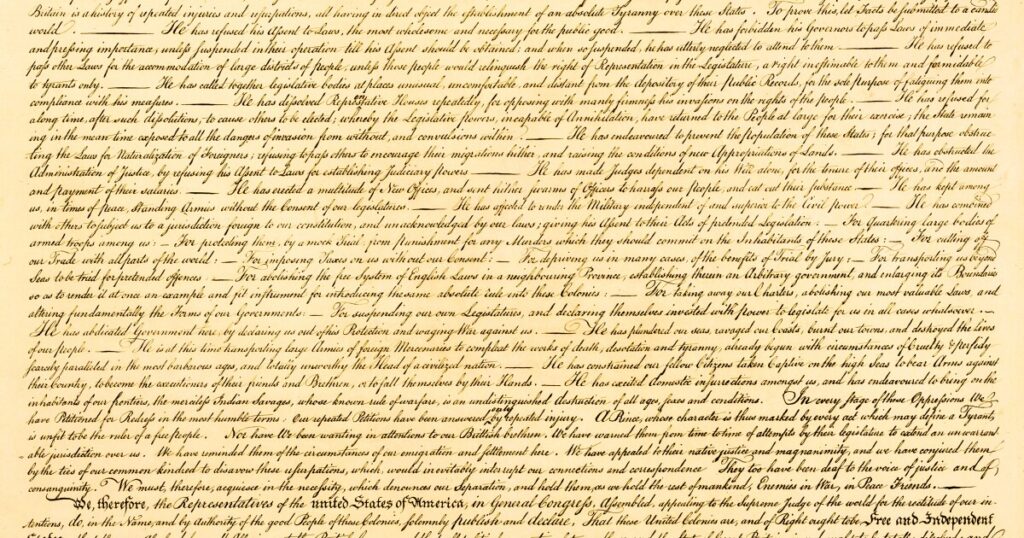 Britain is a history of repeated injuries and usurpations, all having in direct object the establishment of an absolute Tyranny over these States. To prove this, let Facts be submitted to a candid
world. — He has refused his Assent to Laws, the most wholesome and necessary for the public good. — He has forbidden his Governors to pass Laws of immediate
and pressing importance, unless suspended in their operation till his Assent should be obtained; and when so suspended, he has utterly neglected to attend to them. — He has refused to
pass other Laws for the accommodation of large districts of people, unless those people would relinquish the right of Representation in the Legislature, a right inestimable to them and formidable
to tyrants only. — He has called together legislative bodies at places unusual, uncomfortable, and distant from the depository of their Public Records, for the sole purpose of fatiguing them into
compliance with his measures. — He has dissolved Representative Houses repeatedly, for opposing with manly firmness his invasions on the rights of the people. — He has refused for
a long time, after such dissolutions, to cause others to be elected; whereby the Legislative powers, incapable of Annihilation, have returned to the People at large for their exercise; the State remain-
ing in the mean time exposed to all the dangers of invasion from without, and convulsions within. — He has endeavoured to prevent the population of these States; for that purpose obstruc-
ting the Laws for Naturalization of Foreigners; refusing to pass others to encourage their migrations hither, and raising the conditions of new Appropriations of Lands. — He has obstructed the
Administration of Justice, by refusing his Assent to Laws for establishing Judiciary powers. — He has made Judges dependent on his Will alone, for the tenure of their offices, and the amount
and payment of their salaries. — He has erected a multitude of New Offices, and sent hither swarms of Officers to harrass our People, and eat out their substance. — He has kept among
us, in times of peace, Standing Armies without the Consent of our legislatures. — He has affected to render the Military independent of and superior to the Civil power. — He has combined
with others to subject us to a jurisdiction foreign to our constitution, and unacknowledged by our laws; giving his Assent to their Acts of pretended Legislation: — For Quartering large bodies of
armed troops among us: — For protecting them, by a mock Trial, from punishment for any Murders which they should commit on the Inhabitants of these States: — For cutting off
our Trade with all parts of the world: — For imposing Taxes on us without our Consent: — For depriving us in many cases, of the benefits of Trial by Jury: — For transporting us beyond
Seas to be tried for pretended offences. — For abolishing the free System of English Laws in a neighbouring Province, establishing therein an Arbitrary government, and enlarging its Boundaries
so as to render it at once an example and fit instrument for introducing the same absolute rule into these Colonies: — For taking away our Charters, abolishing our most valuable Laws, and
altering fundamentally the Forms of our Governments: — For suspending our own Legislatures, and declaring themselves invested with power to legislate for us in all cases whatsoever. —
He has abdicated Government here, by declaring us out of his Protection and waging War against us. — He has plundered our seas, ravaged our Coasts, burnt our towns, and destroyed the lives
of our people. — He is at this time transporting large Armies of foreign Mercenaries to compleat the works of death, desolation and tyranny, already begun with circumstances of Cruelty & perfidy
scarcely paralleled in the most barbarous ages, and totally unworthy the Head of a civilized nation. — He has constrained our fellow Citizens taken Captive on the high Seas to bear Arms against
their Country, to become the executioners of their friends and Brethren, or to fall themselves by their Hands. — He has excited domestic insurrections amongst us, and has endeavoured to bring on the
inhabitants of our frontiers, the merciless Indian Savages, whose known rule of warfare, is an undistinguished destruction of all ages, sexes and conditions. In every stage of these Oppressions We
have Petitioned for Redress in the most humble terms: Our repeated Petitions have been answered only by repeated injury. A Prince, whose character is thus marked by every act which may define a Tyrant,
is unfit to be the ruler of a free people. Nor have We been wanting in attentions to our Brittish brethren. We have warned them from time to time of attempts by their legislature to extend an unwarrant-
able jurisdiction over us. We have reminded them of the circumstances of our emigration and settlement here. We have appealed to their native justice and magnanimity, and we have conjured them
by the ties of our common kindred to disavow these usurpations, which, would inevitably interrupt our connections and correspondence They too have been deaf to the voice of justice and of
consanguinity. We must, therefore, acquiesce in the necessity, which denounces our Separation, and hold them, as we hold the rest of mankind, Enemies in War, in Peace Friends. —
We, therefore, the Representatives of the united States of America, in General Congress, Assembled, appealing to the Supreme Judge of the world for the rectitude of our in-
tentions, do, in the Name, and by Authority of the good People of these Colonies, solemnly publish and declare, That these United Colonies are, and of Right ought to be Free and Independent